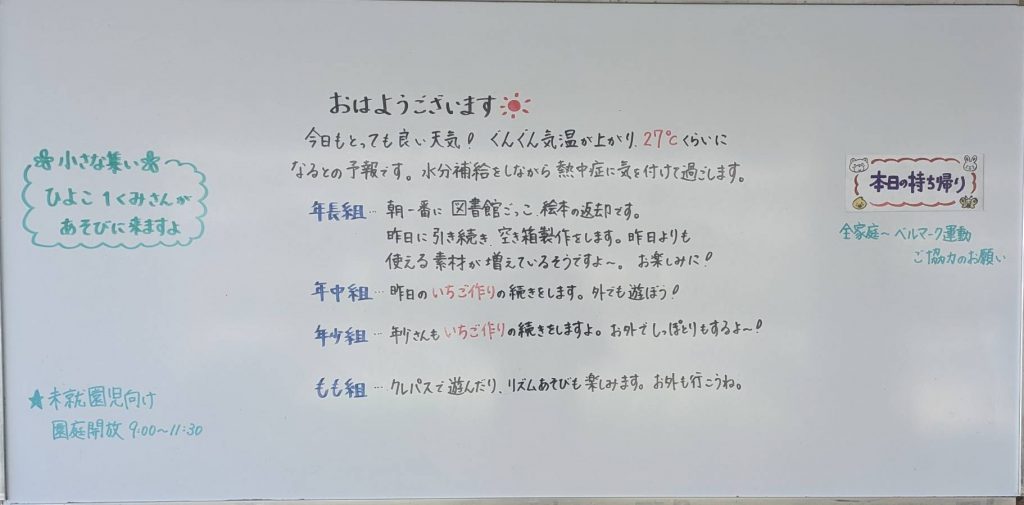 おはようございます
今日もとっても良い天気! ぐんぐん気温が上がり、27℃くらいに
なるとの予報です。水分補給をしながら熱中症に気を付けて過ごします。
年長組… 朝一番に 図書館ごっこ、絵本の返却です。
昨日に引き続き、空き箱製作をします。昨日よりも
使える素材が増えているそうですよ〜。お楽しみに!
年中組… 昨日のいちご作りの続きをします。外でも遊ぼう!
年少組… 年少さんもいちご作りの続きをしますよ。お外でしっぽとりもするよ〜!
もも組… クレパスで遊んだり、リズムあそびも楽しみます。お外も行こうね。
小さな集い〜
ひよこ1くみさんが
あそびに来ますよ
★未就園児向け
園庭開放 9:00〜11:30
本日の持ち帰り
全家庭〜ベルマーク運動
ご協力のお願い